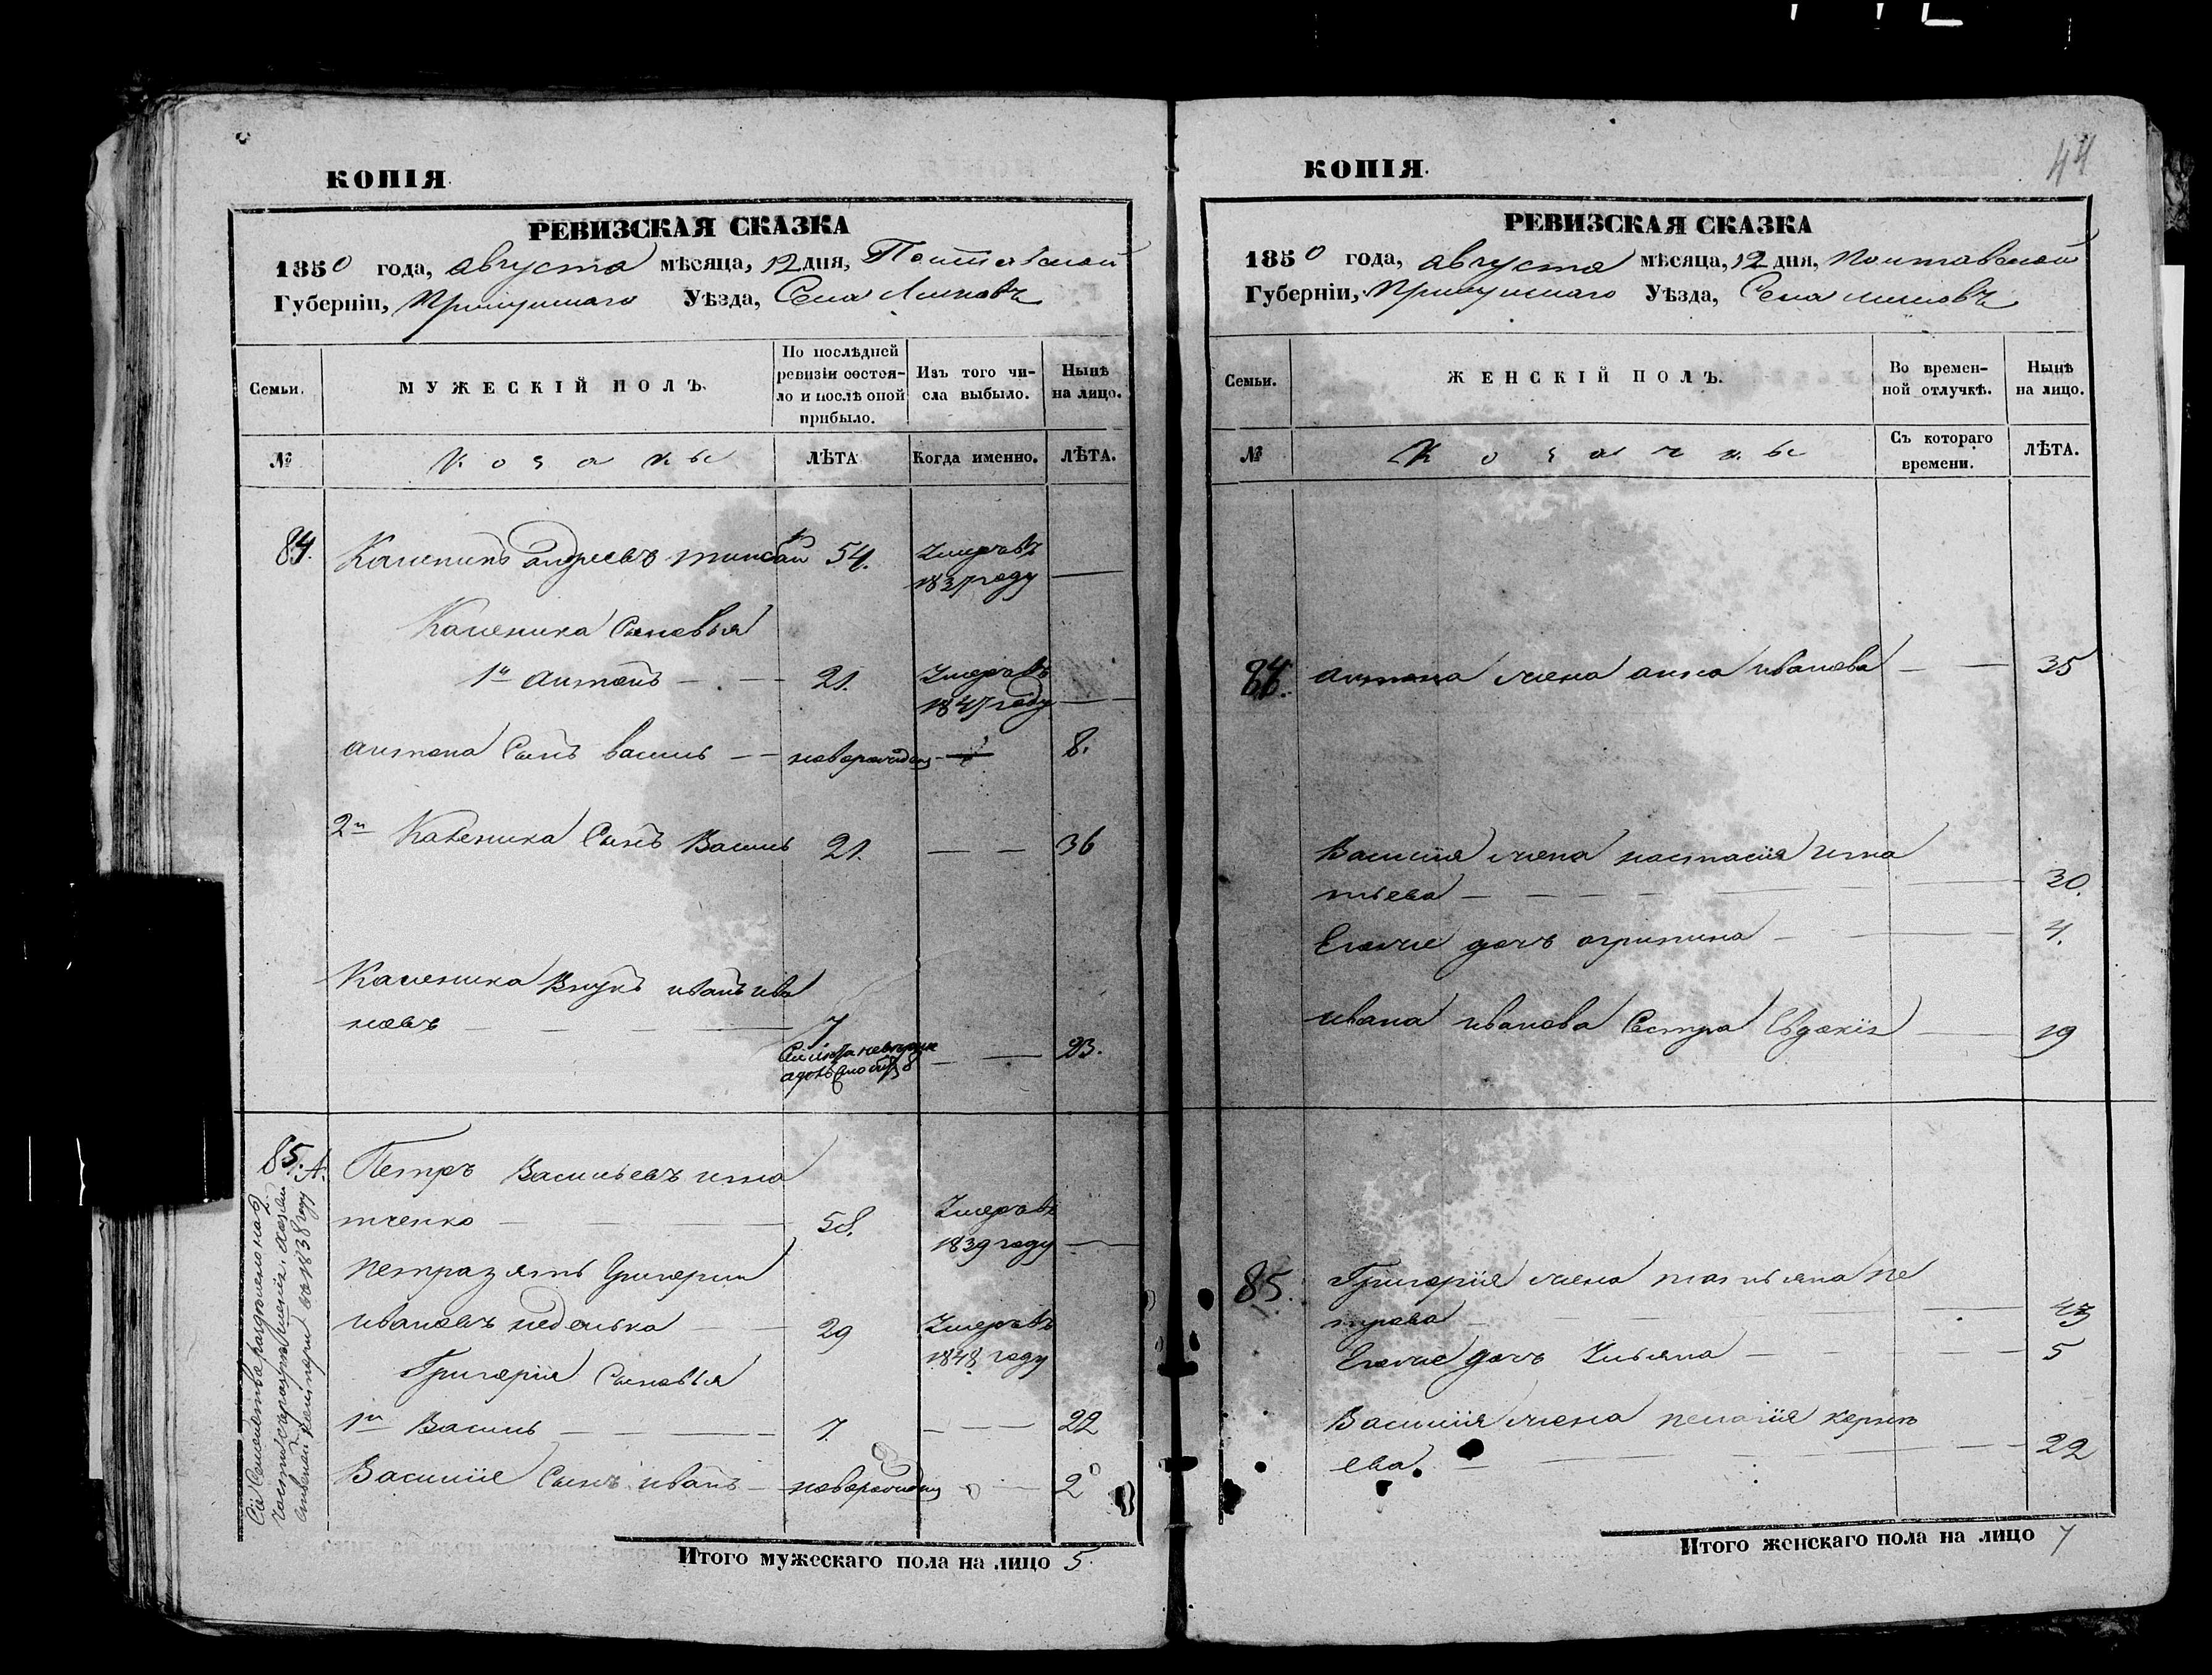 КОПІЯ.
РЕВИЗСКАЯ СКАЗКА
1850 года, августа мѣсяца, 12 дня, Полтавской
Губерніи, Прилуцкаго Уѣзда, Села
Семьи.
МУЖЕСКІЙ ПОЛЪ.
По послѣдней
ревизіи состоя-
ло и послѣ оной
прибыло.
Изъ того чи-
сла выбыло.
Нынѣ
на лицо.
№
Козаки
ЛѢТА
Когда именно.
ЛѢТА.
84. Каленикъ Андреевъ 54. Умеръ въ
1837 году
Каленика Сыновья
1й Антонъ 21. Умеръ въ
1847 году
Антона Сынъ Василь новорожден 8.
2й Каленика Сынъ Василь 21. 36
Каленика Внукъ иванъ ива
новъ 7
23.
85. А. Петръ Васильевъ игна
тченко 58. Умеръ въ
1839 году
Петра зять Григорий
ивановъ неделька 29 Умеръ въ
1848 году
Григория Сыновья
1й Василь 7. 22
Василия Сынъ иванъ новорожден 2
Итого мужескаго пола на лицо 5.
44
КОПІЯ.
РЕВИЗСКАЯ СКАЗКА
1850 года, августа мѣсяца, 12 дня, Полтавской
Губерніи, Прилуцкаго Уѣзда, Села
Семьи.
ЖЕНСКІЙ ПОЛЪ.
Во времен-
ной отлучкѣ.
Нынѣ
на лицо.
№
Козачки
Съ котораго
времени.
ЛѢТА.
84. Антона жена анна иванова 35
Василия жена настасия игна
тьева 30.
Егоже дочь агрипина 4.
ивана иванова Сестра Евдокія 19
85. Григорія жена татьяна пе
трова 43
Егоже дочь Ульяна 5
Василия жена пелагія
ева. 22
Итого женскаго пола на лицо 7